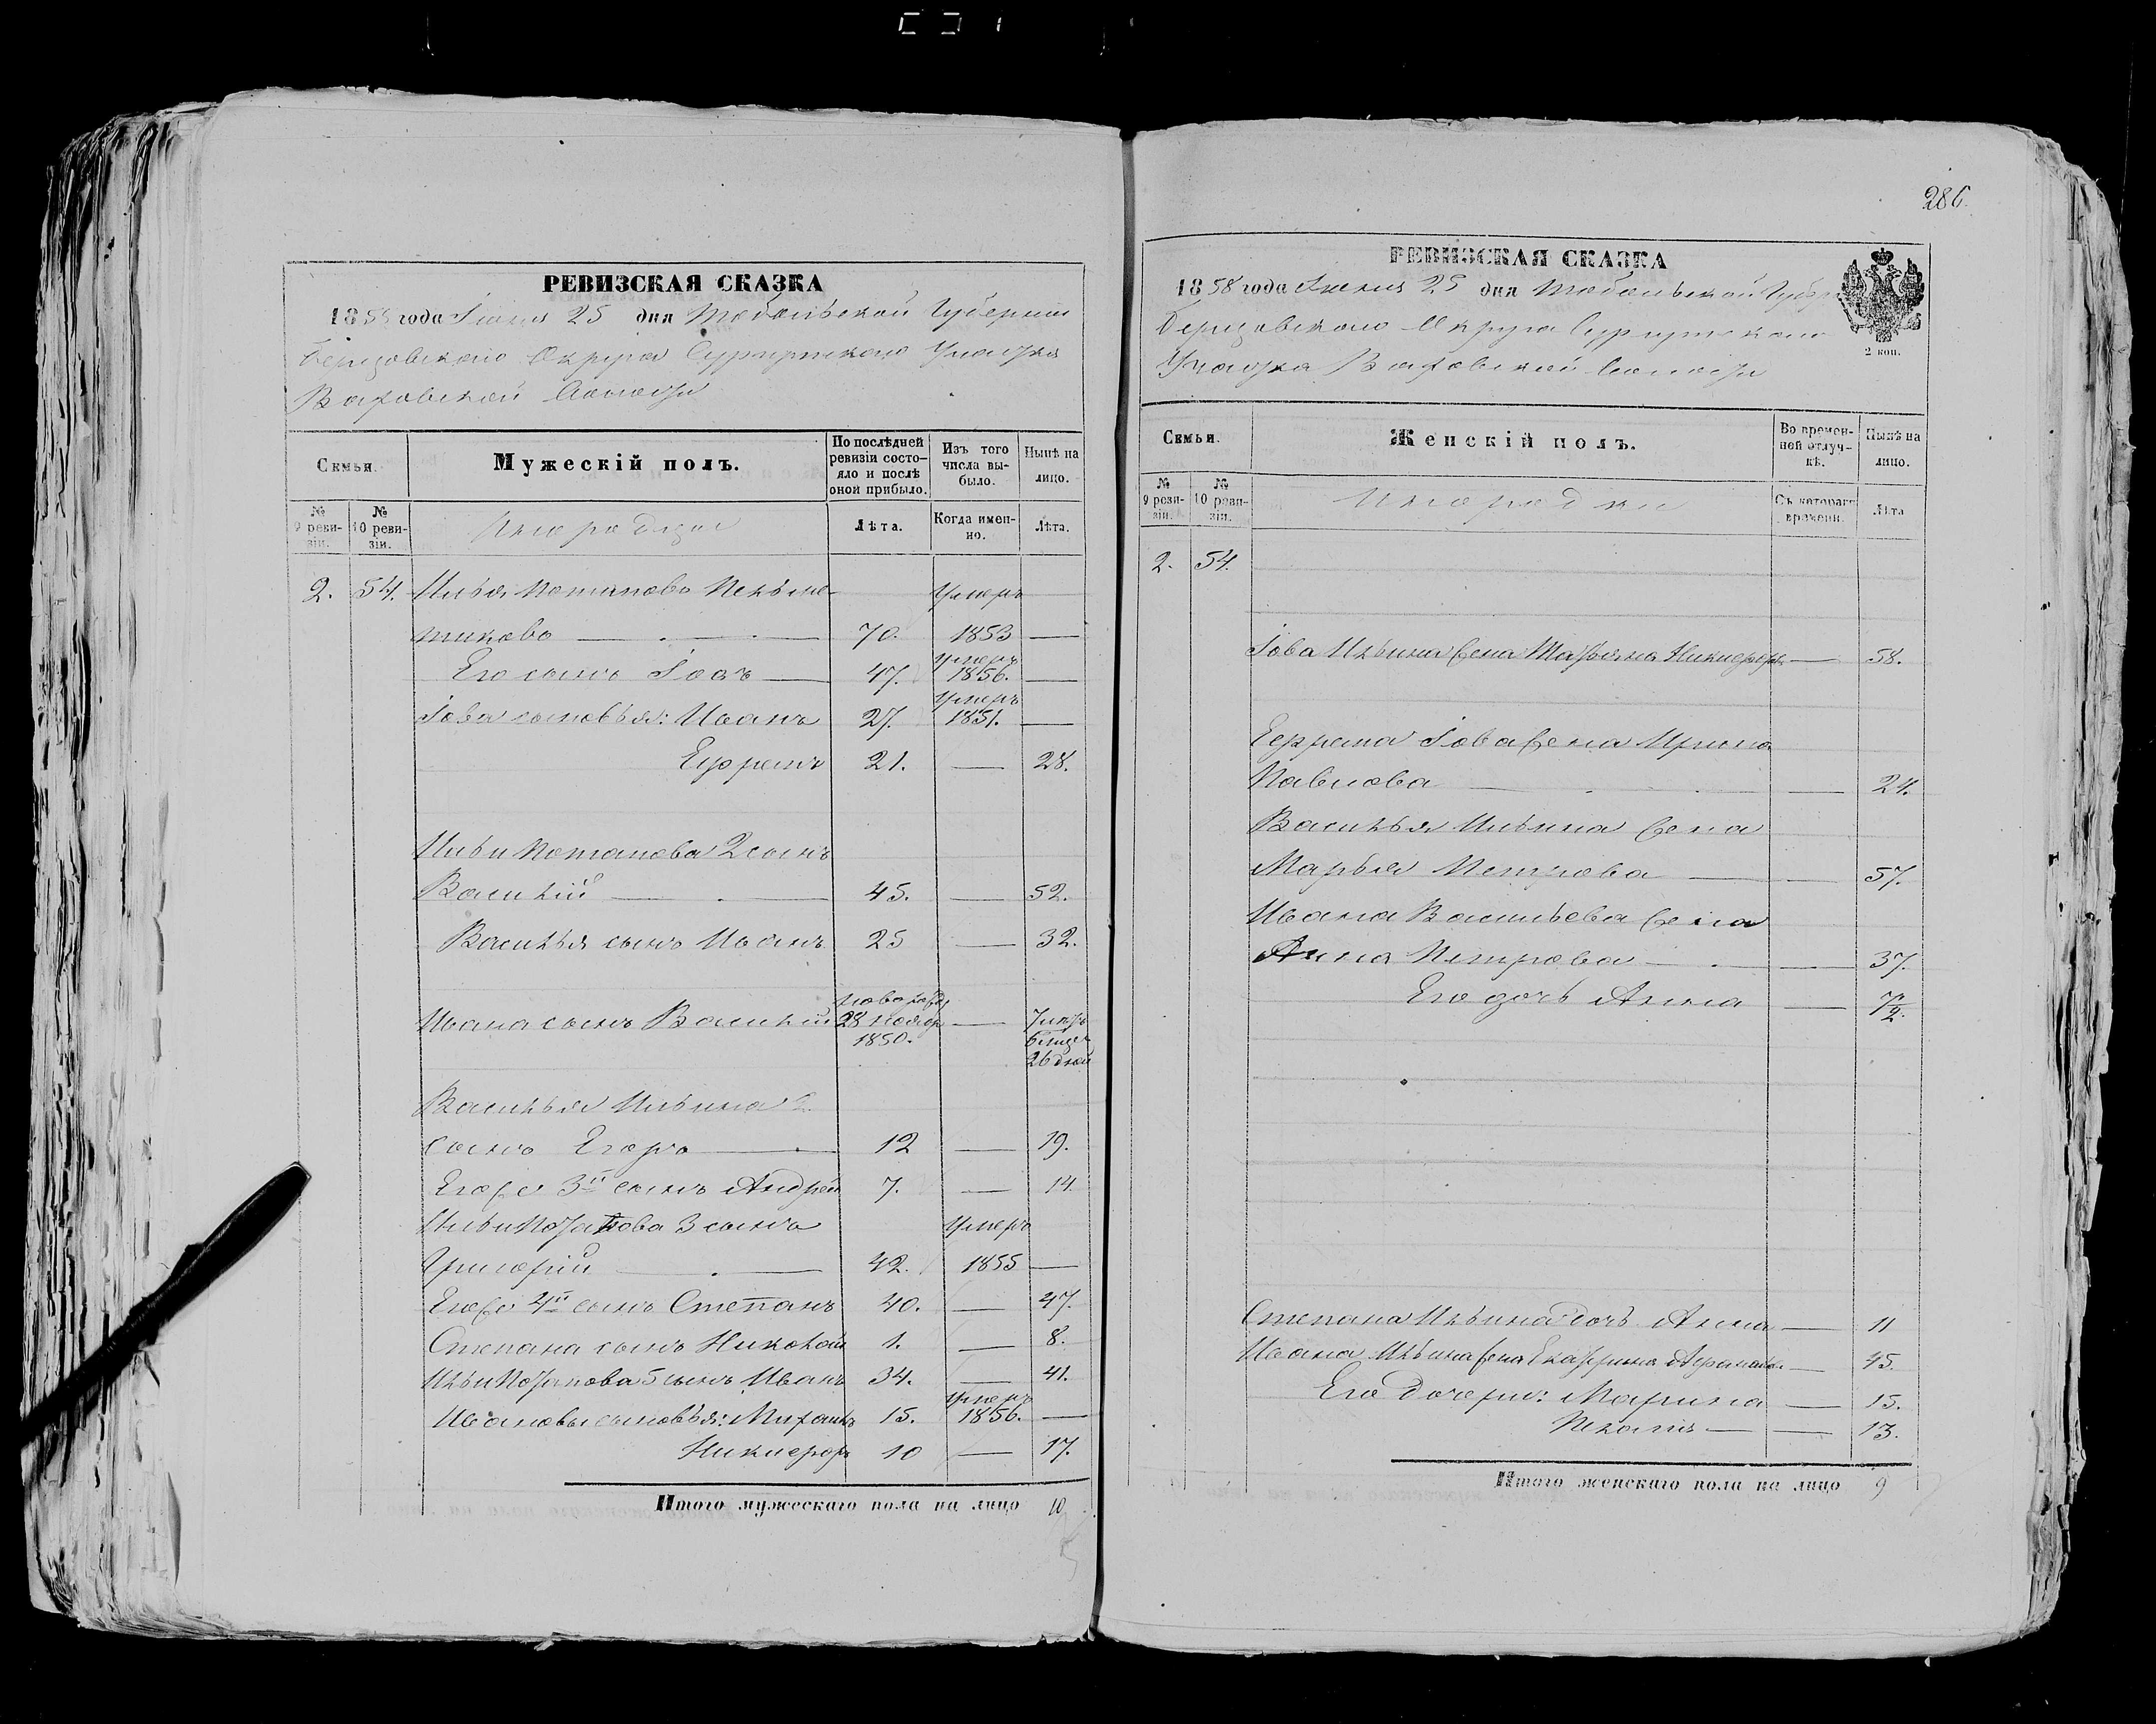 286.
РЕВИЗСКАЯ СКАЗКА
1858 года Іюня 25 дня Тобольской Губерніи
Березовскаго Округа Сургутскаго Участка
Ваховской Волости
Семьи.
Мужескій полъ.
По послѣдней ревизіи состояло и послѣ оной прибыло.
Изъ того числа выбыло.
Нынѣ на лицо.
№ 9 ревизіи.
№ 10 ревизіи.
Инородцы
Лѣта.
Когда именно.
Лѣта.
2. 54. Илья Потаповъ Умеръ
70. 1853 —
Его сынъ Іовъ — 47. умеръ 1856. —
Іова сыновья: Иванъ 27. умеръ 1851. —
Ефремъ 21. — 28.
Ильи Потапова 2 сынъ
Василій — 45. — 52.
Василья сынъ Иванъ 25 — 32.
Ивана сынъ Василій 28 ноябр 1850. — 7 6 мцев 26 дней
Василья Ильина 2
сынъ Егоръ — 12 — 19.
Егоже 3й сынъ Андрей 7. — 14
Ильи Потапова 3 сынъ Умеръ
Григорій — 42. 1855 —
Егоже 4й сынъ Степанъ 40. — 47.
Степана сынъ Николай 1. — 8.
Ильи Потапова 5 сынъ Иванъ 34. — 41.
Ивановы сыновья: 15. умеръ 1856. —
Никифоръ 10 — 17.
Итого мужескаго пола на лицо 10.
РЕВИЗСКАЯ СКАЗКА
1858 года Іюня 25 дня Тобольской Губер
Березовскаго Округа Сургутскаго
Участка Ваховской Волости
2 коп.
Семьи.
Женскій полъ.
Во временной отлучкѣ.
Нынѣ на лицо.
№ 9 ревизіи.
№ 10 ревизіи.
Инородки
Съ котораго времени.
Лѣта
2. 54.
Іова Ильина жена Татьяна Никифор — 58.
Ефрема Іова жена Ирина
Павлова — — 24.
Василья Ильина жена
Марья Петрова — — 57.
Ивана Васильева жена
Анна Петрова — — 37.
Его дочь Анна — 7/2.
Степана Ильина дочь Анна — 11
Ивана Ильина жена Екатерина — 45.
Его дочери: Марина — 15.
— — 13.
Итого женскаго пола на лицо 9